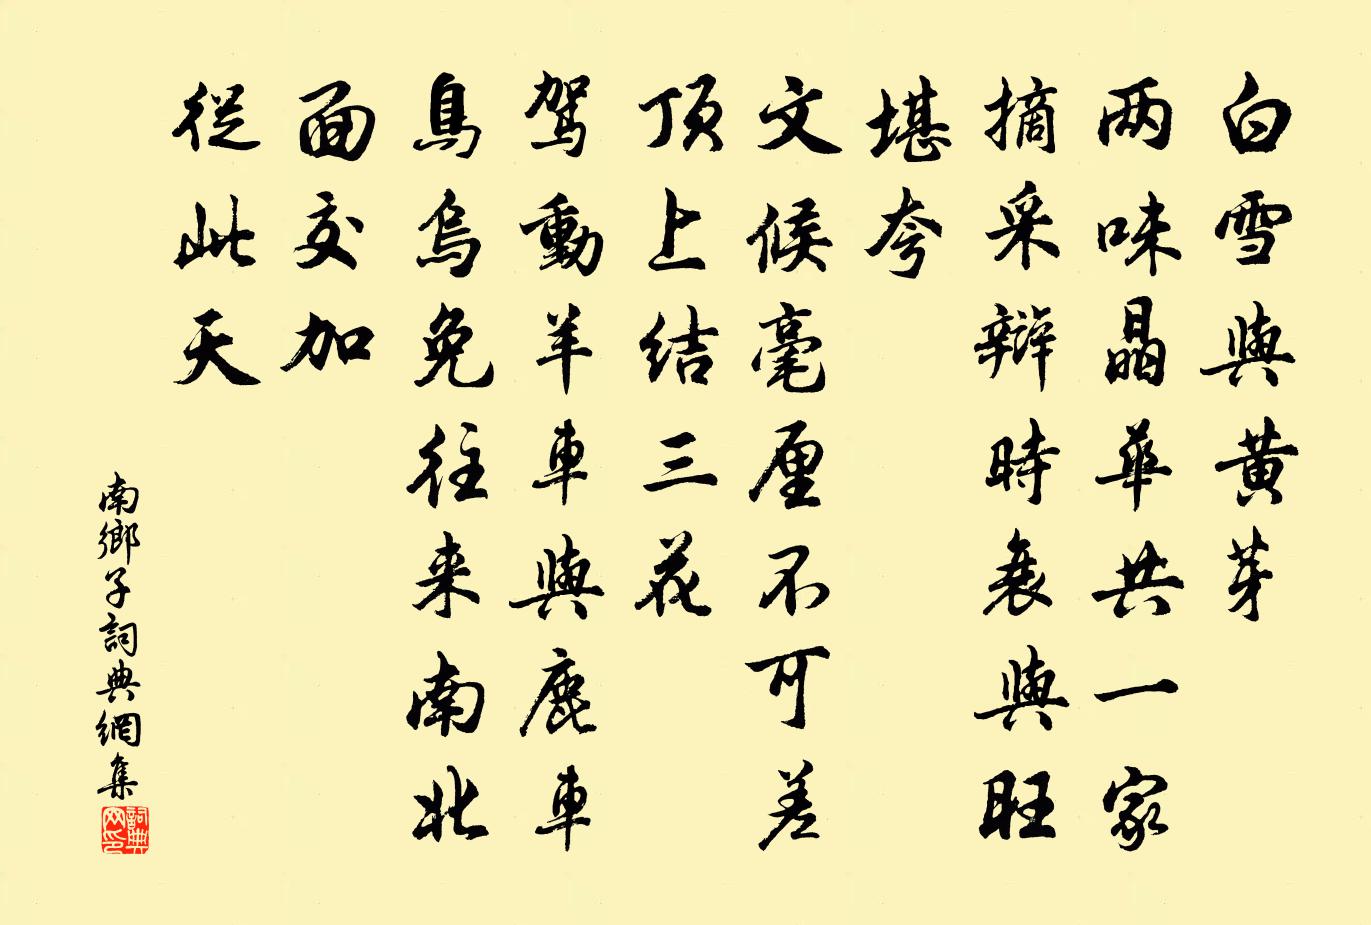 白雪與黃芽
两味晶華共一家
摘采辯時衰與旺
堪夸
文候毫厘不可差
顶上结三花
驾動羊車與鹿車
烏免往来南北
面交加
從此天
南鄉子詞典網集
詞典网印